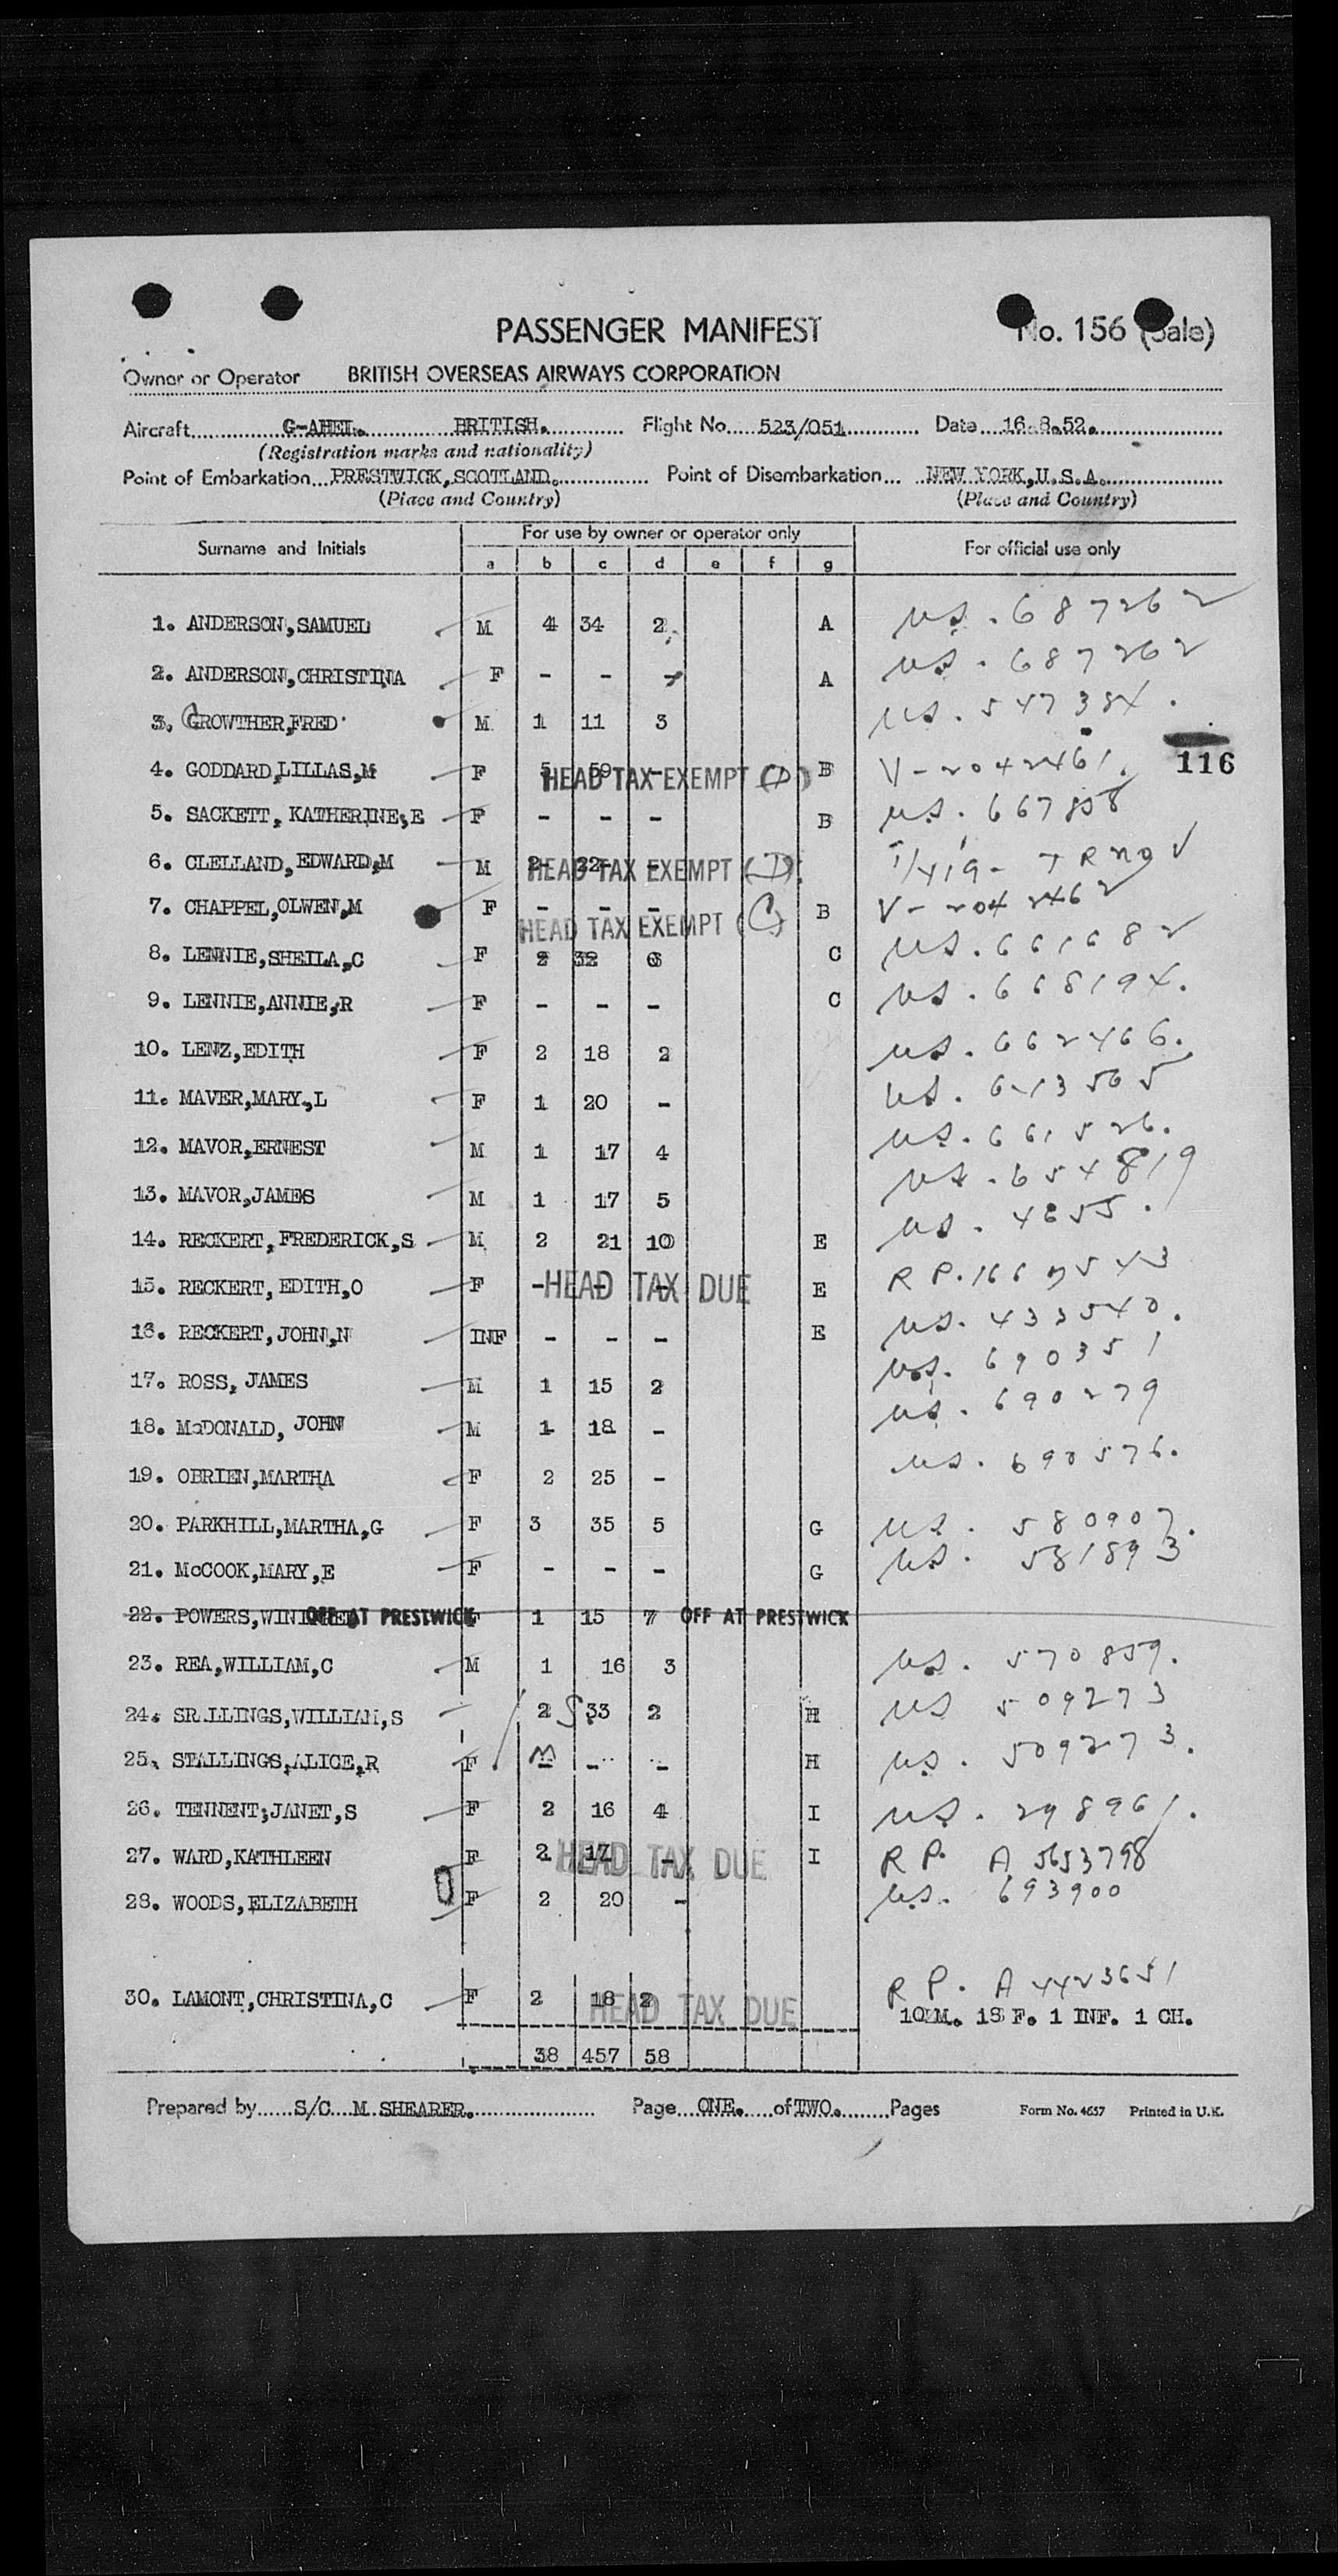 PASSENGER MANIFEST No. 156 (Sale)
Owner or Operator BRITISH OVERSEAS AIRWAYS CORPORATION
Aircraft G-AHEL. BRITISH. Flight No. 523/051 Date 16.8.52.
(Registration marks and nationality)
Point of Embarkation PRESTWICK, SCOTLAND. Point of Disembarkation NEW YORK, U.S.A.
(Place and Country) (Place and Country)
Surname and Initials For use by owner or operator only For official use only
a b c d e f g
1. ANDERSON, SAMUEL M 4 34 2 A US. 687262
2. ANDERSON, CHRISTINA F - - - A US. 687262
3. CROWTHER, FRED M 1 11 3 US. 547384.
116
4. GODDARD, LILLAS, M F 5 59 - HEAD TAX EXEMPT (D) B V-2042461.
5. SACKETT, KATHERINE, E F - - - B US. 667858
6. CLELLAND, EDWARD, M M 2 22 - HEAD TAX EXEMPT (I)
7. CHAPPEL, OLWEN, M F - - - B V-2042462
HEAD TAX EXEMPT (C)
8. LENNIE, SHEILA, C F 2 32 6 C US. 661682
9. LENNIE, ANNIE, R F - - - C US. 668194.
10. LENZ, EDITH F 2 18 2 US. 662466.
11. MAVER, MARY, L F 1 20 - US. 613565
12. MAVOR, ERNEST M 1 17 4 US. 661526.
13. MAVOR, JAMES M 1 17 5 US. 654819
14. RECKERT, FREDERICK, S M 2 21 10 E US. 4655.
15. RECKERT, EDITH, O F - - - HEAD TAX DUE E R P.
16. RECKERT, JOHN, N INF - - - E US. 433540.
17. ROSS, JAMES M 1 15 2 US. 690351
18. McDONALD, JOHN M 1 18 - US. 690279
19. OBRIEN, MARTHA F 2 25 - US. 690576.
20. PARKHILL, MARTHA, G F 3 35 5 G US. 580907.
21. McCOOK, MARY, E F - - - G US. 581893
22. POWERS, WINIFRED OFF AT PRESTWICK F 1 15 7 OFF AT PRESTWICK
23. REA, WILLIAM, C M 1 16 3 US. 570859.
24. SRALLINGS, WILLIAM, S 2 S 33 2 H US 509273
25. STALLINGS, ALICE, R F M - - - H US. 509273.
26. TENNENT, JANET, S F 2 16 4 I US. 298961.
27. WARD, KATHLEEN F 2 17 - HEAD TAX DUE I R P. A 5653798
28. WOODS, ELIZABETH F 2 20 - US. 693900
30. LAMONT, CHRISTINA, C F 2 18 2 HEAD TAX DUE R P. A 4423651
10 M. 18 F. 1 INF. 1 CH.
38 457 58
Prepared by S/C M SHEARER. Page ONE. of TWO. Pages Form No. 4657 Printed in U.K.